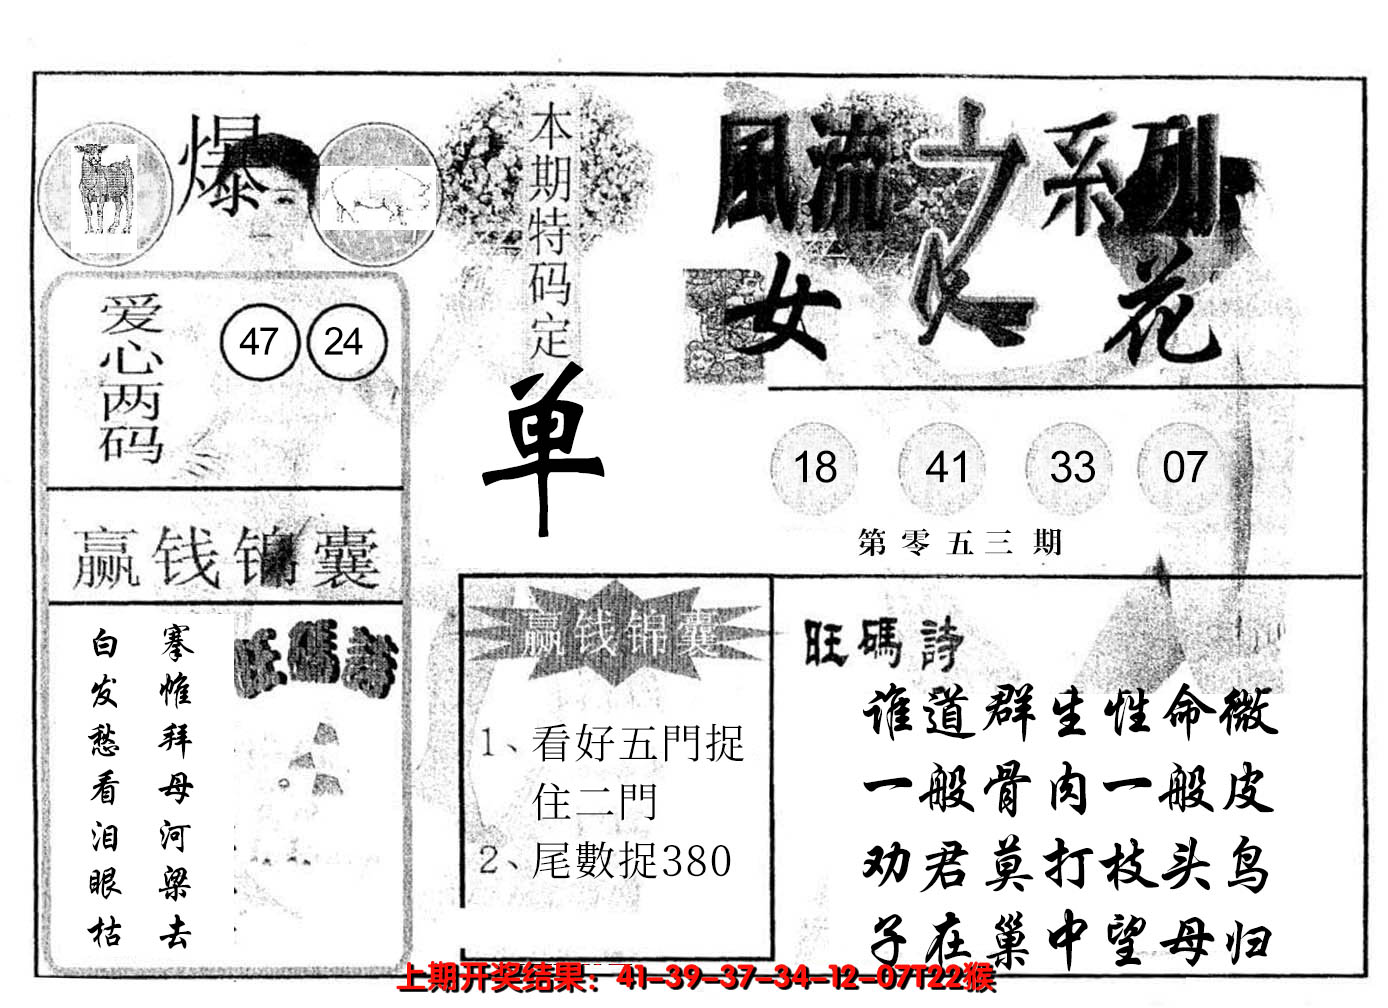 爆
本期特码定
单
風流之系列
女人花
爱心两码
47 24
18 41 33 07
第零五三期
赢钱锦囊
旺碼詩
搴帷拜母河梁去
白发愁看泪眼枯
赢钱锦囊
1、看好五門捉
住二門
2、尾數捉380
旺碼詩
谁道群生性命微
一般骨肉一般皮
劝君莫打枝头鸟
子在巢中望母归
上期开奖结果：41-39-37-34-12-07T22猴